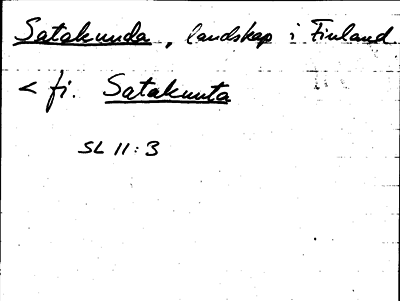 Satakunda, landskap i Finland.
< fi. Satakunta
SL 11:3